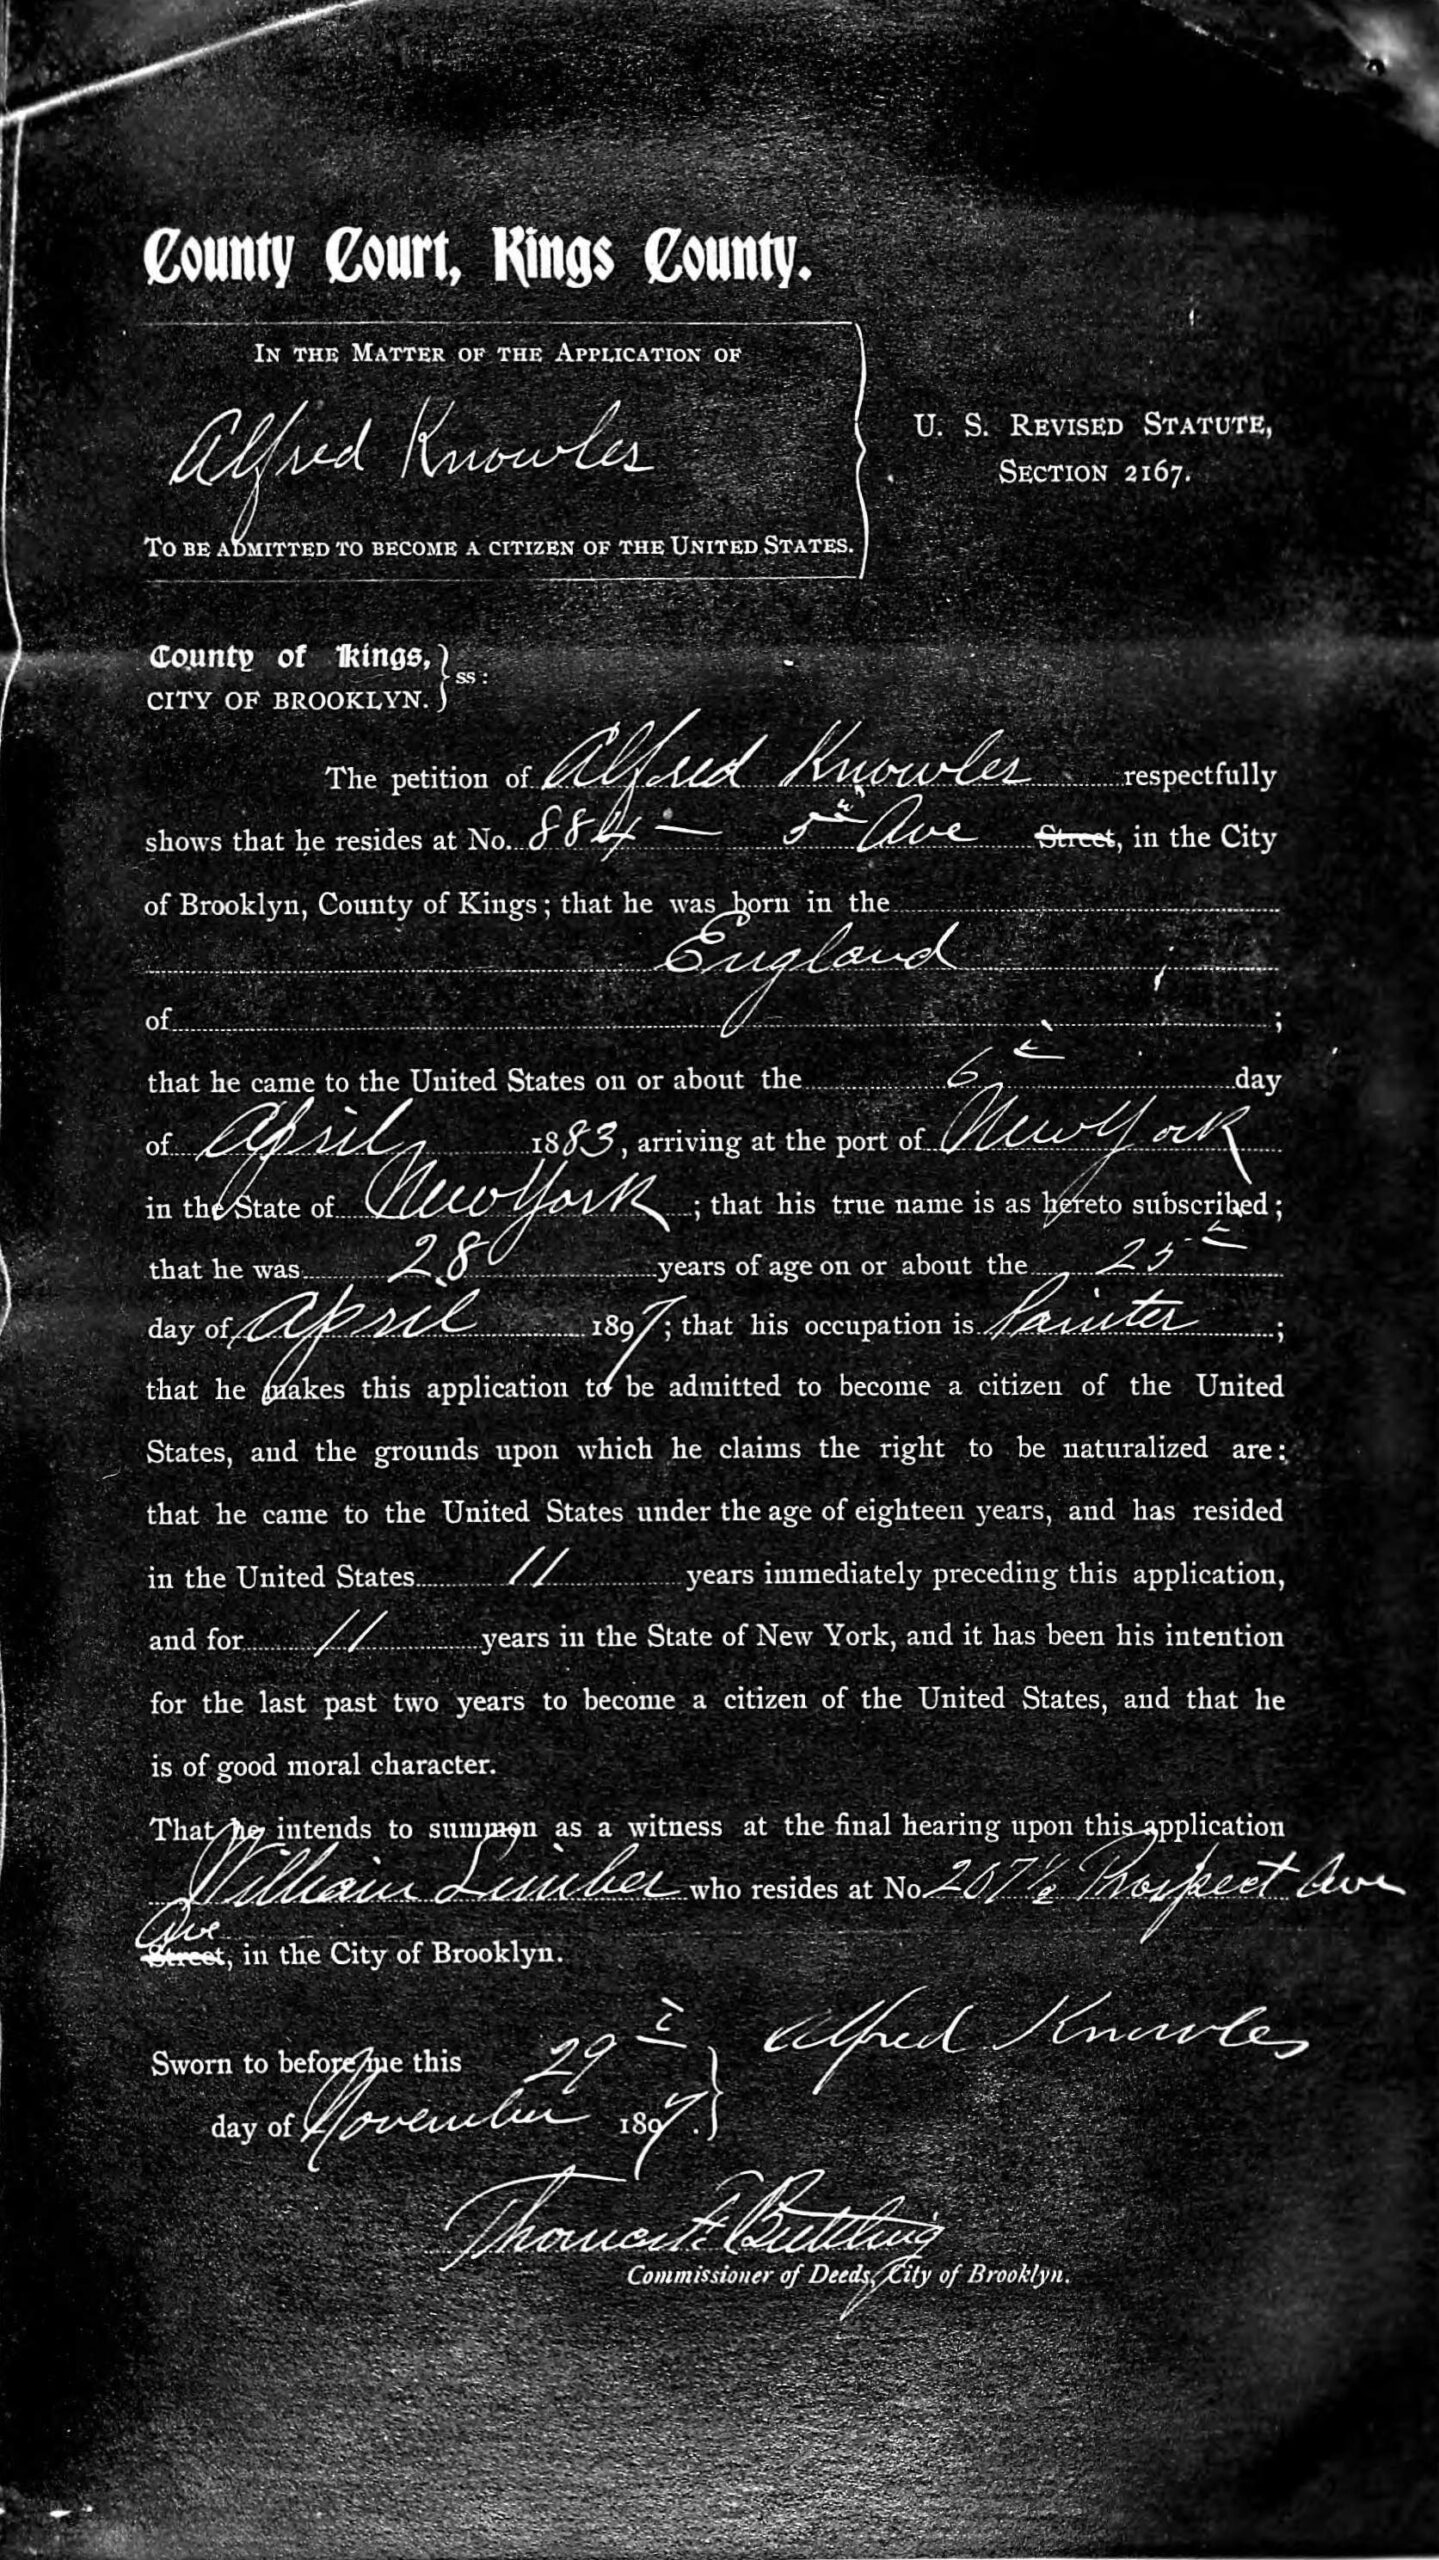 County Court, Kings County.
IN THE MATTER OF THE APPLICATION OF
Alfred Knowles
TO BE ADMITTED TO BECOME A CITIZEN OF THE UNITED STATES.
U. S. REVISED STATUTE,
SECTION 2167.
County of Kings,
CITY OF BROOKLYN. } ss:
The petition of Alfred Knowles respectfully
shows that he resides at No. 884 — 5th Ave Street, in the City
of Brooklyn, County of Kings; that he was born in the
England
of ;
that he came to the United States on or about the 6th day
of April 1883, arriving at the port of New York
in the State of New York; that his true name is as hereto subscribed;
that he was 28 years of age on or about the 25th
day of April 1897; that his occupation is Painter;
that he makes this application to be admitted to become a citizen of the United
States, and the grounds upon which he claims the right to be naturalized are:
that he came to the United States under the age of eighteen years, and has resided
in the United States 11 years immediately preceding this application,
and for 11 years in the State of New York, and it has been his intention
for the last past two years to become a citizen of the United States, and that he
is of good moral character.
That he intends to summon as a witness at the final hearing upon this application
William who resides at No 207½ Prospect Ave
Ave
Street, in the City of Brooklyn.
Sworn to before me this 29th
day of November 1897.
Alfred Knowles
Thomas F.
Commissioner of Deeds, City of Brooklyn.